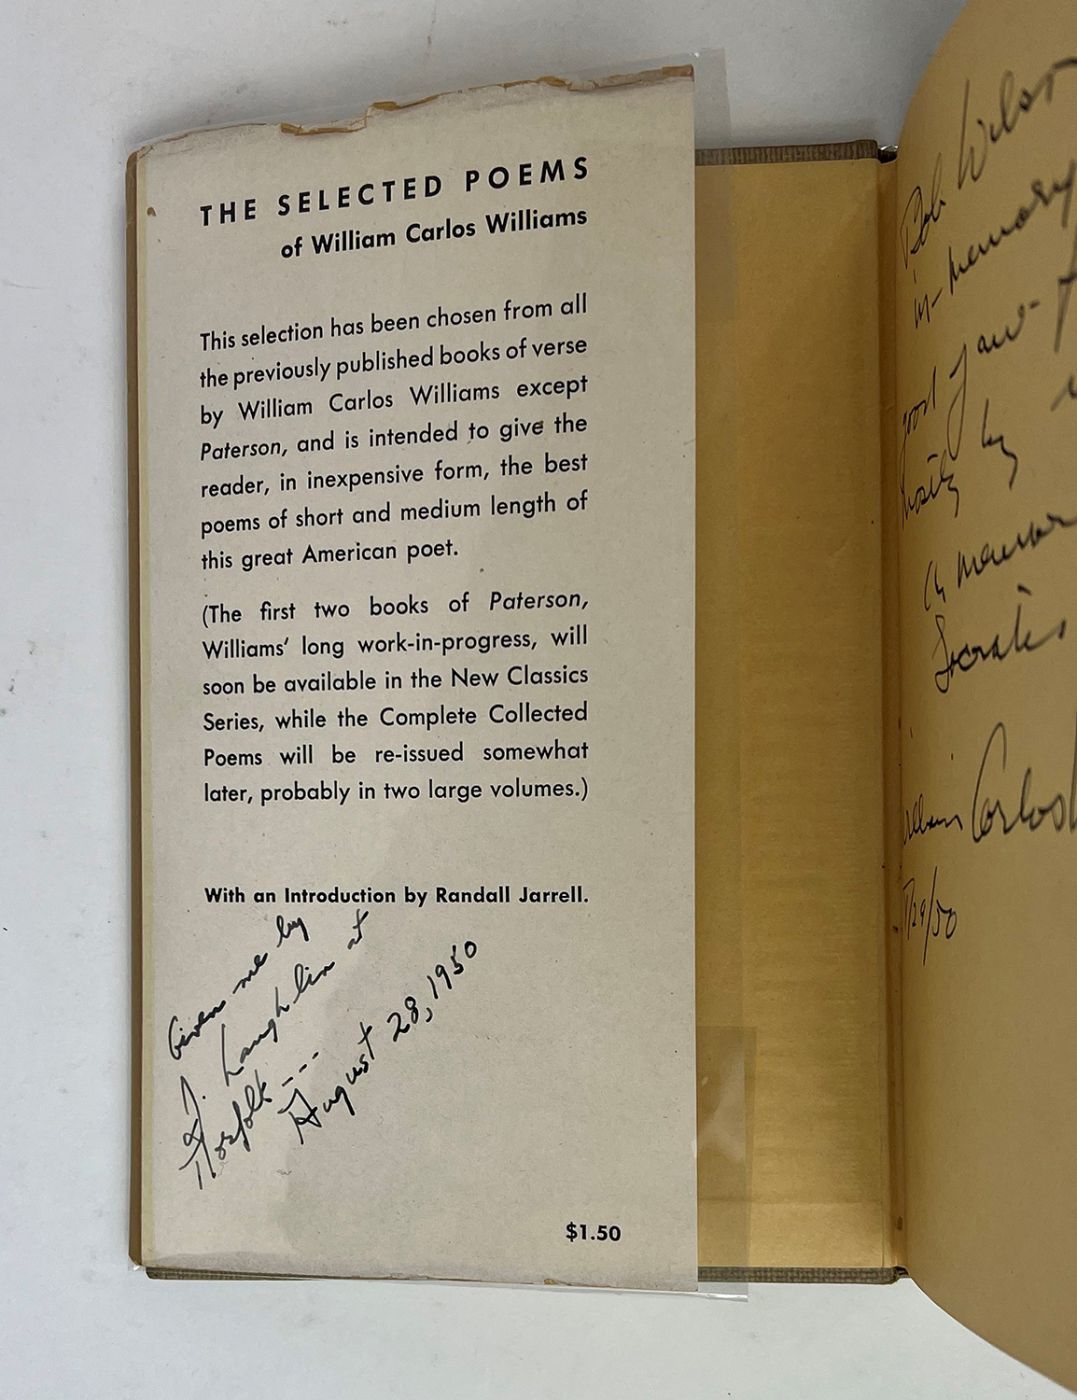 THE SELECTED POEMS
of William Carlos Williams
This selection has been chosen from all
the previously published books of verse
by William Carlos Williams except
Paterson, and is intended to give the
reader, in inexpensive form, the best
poems of short and medium length of
this great American poet.
(The first two books of Paterson,
Williams' long work-in-progress, will
soon be available in the New Classics
Series, while the Complete Collected
Poems will be re-issued somewhat
later, probably in two large volumes.)
With an Introduction by Randall Jarrell.
Given me by
J. Laughlin at
Norfolk ---
August 28, 1950
$1.50
Bob
in memory
good
mostly by
Socrates
Carlos
/29/50